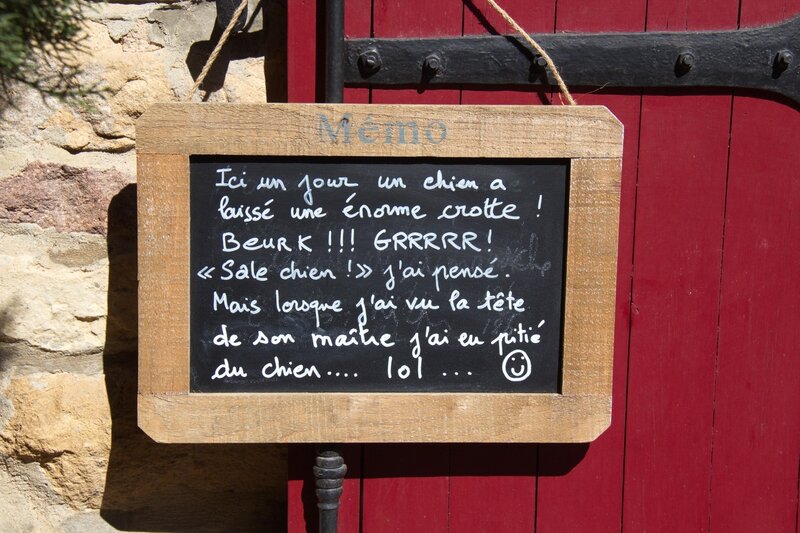 Mémo
Ici un jour un chien a
laissé une énorme crotte !
BEURK !!! GRRRRR!
« Sale chien !» j'ai pensé.
Mais lorsque j'ai vu la tête
de son maître j'ai eu pitié
du chien.... lol ...